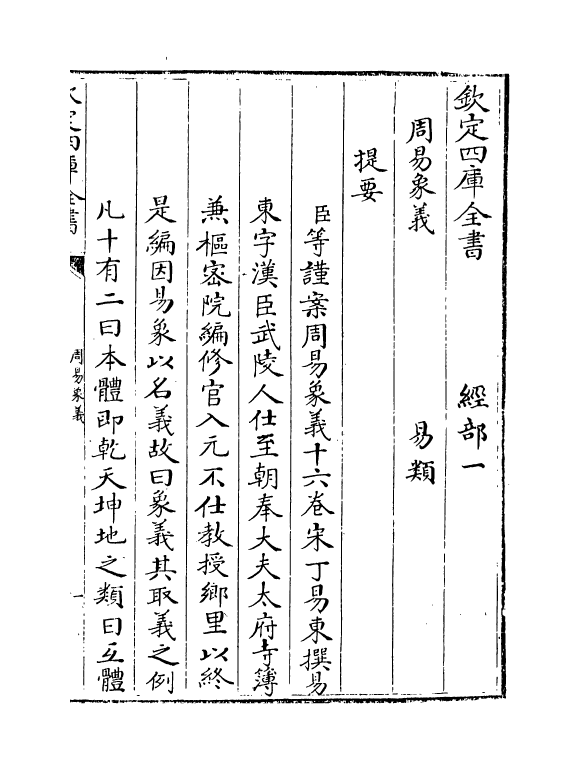 欽定四庫全書　經部一
周易象義　易類
提要
臣等謹案周易象義十六卷宋丁易東撰易
東字漢臣武陵人仕至朝奉大夫太府寺簿
兼樞密院編修官入元不仕教授鄉里以終
是編因易象以名義故曰象義其取義之例
凡十有二曰本體即乾天坤地之類曰互體
欽定四庫全書
周易象義
一